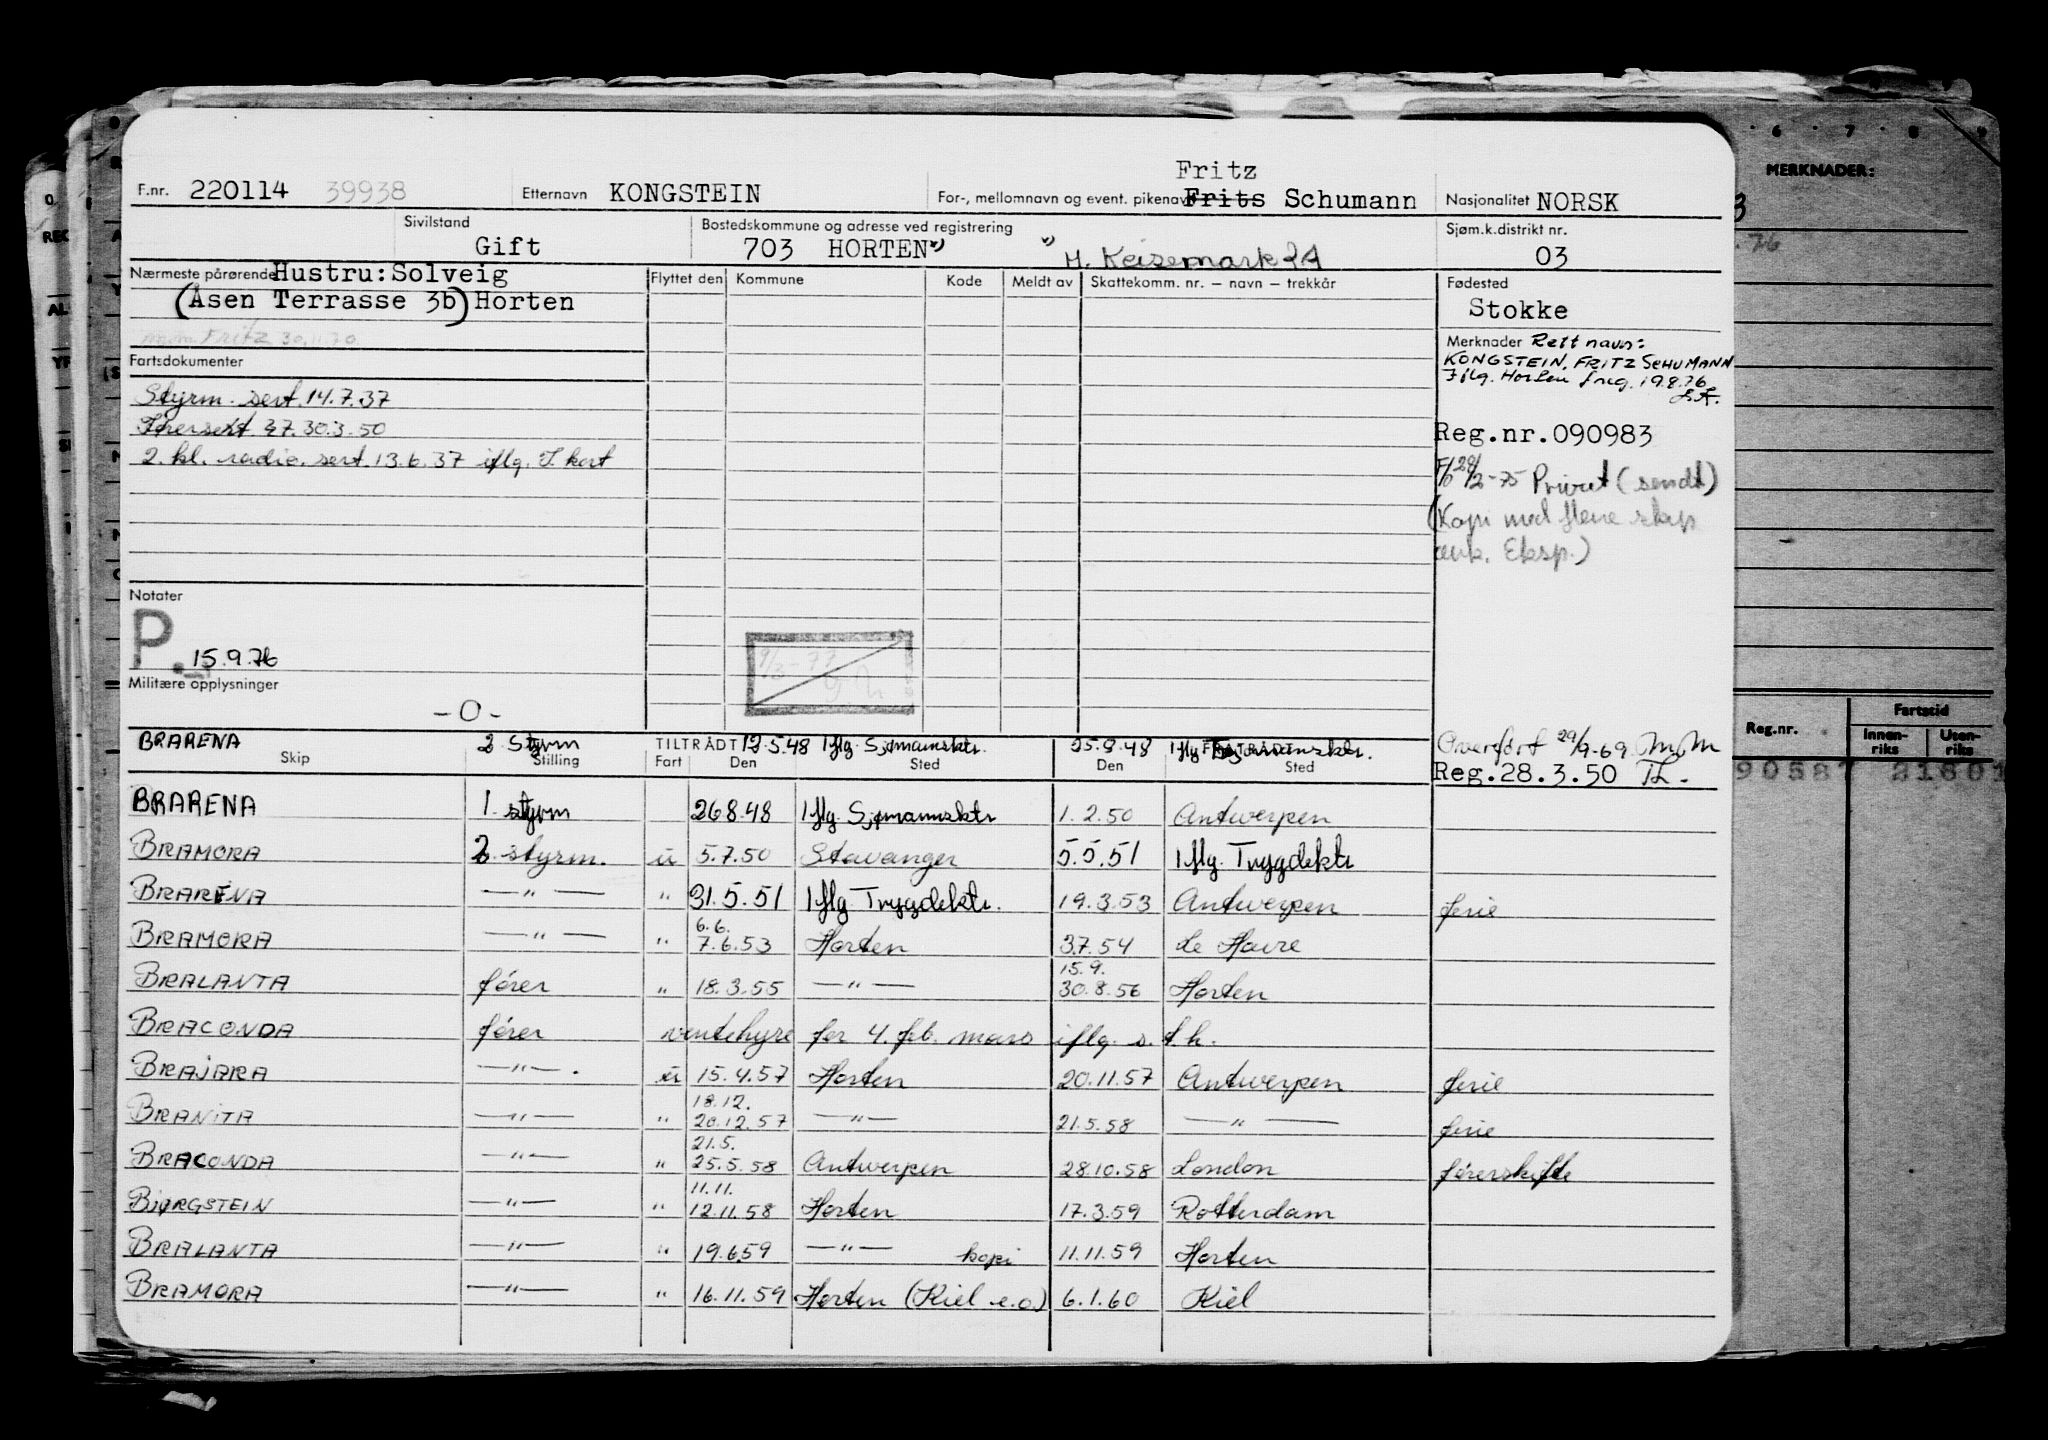 Fritz
F.nr. 220114 39938 Etternavn KONGSTEIN For-, mellomnavn og event. pikenavn Frits Schumann Nasjonalitet NORSK
Sivilstand Gift Bostedskommune og adresse ved registrering 703 HORTEN Sjøm.k.distrikt nr. 03
Nærmeste pårørende Hustru: Solveig Flyttet den Kommune Kode Meldt av Skattekomm. nr. – navn – trekkår Fødested
(Åsen Terrasse 3b) Horten Stokke
Fritz 30.11.70
Merknader Rett navn:
KONGSTEIN, FRITZ SCHUMANN
Iflg. Horten 19.8.76
Fartsdokumenter
Styrm. sert. 14.7.37
30.3.50 Reg.nr. 090983
2. kl. radio. sert. 13.6.37 iflg. kort
-75 Privat (sendt)
(Kopi med flere skip
ank. Eksp.)
Notater
P. 15.9.76
Militære opplysninger
-0-
BRARENA 2 Styrm TILTRÅDT 12.5.48 Iflg. Sjømannsktr. 25.8.48 Iflg. Sjømannsktr. Overført 29/9-69 MM
Skip Stilling Fart Den Sted Den Sted Reg. 28.3.50 TL.
BRARENA 1. styrm 26.8.48 Iflg. Sjømannsktr 1.2.50 Antwerpen
BRAMORA 2. styrm. u 5.7.50 Stavanger 5.5.51 Iflg. Trygdektr
BRARENA —"— " 31.5.51 Iflg. Trygdektr. 19.3.53 Antwerpen ferie
BRAMORA —"— " 6.6. 7.6.53 Horten 3.7.54 Le Havre
BRALANTA fører " 18.3.55 —"— 15.9. 30.8.56 Horten
BRACONDA fører ventehyre for 4. feb. mars iflg. s.f.h.
BRAJARA —"—. u 15.4.57 Horten 20.11.57 Antwerpen ferie
BRANITA —"— " 18.12. 20.12.57 —"— 21.5.58 —"— ferie
BRACONDA —"— " 21.5. 25.5.58 Antwerpen 28.10.58 London førerskifte
BJØRGSTEIN —"— " 11.11. 12.11.58 Horten 17.3.59 Rotterdam
BRALANTA —"— " 19.6.59 —"— kopi 11.11.59 Horten
BRAMORA —"— " 16.11.59 Horten (Kiel e.o.) 6.1.60 Kiel
6 7 8 9
MERKNADER:
Reg.nr. Fartstid
Innen-riks Uten-riks